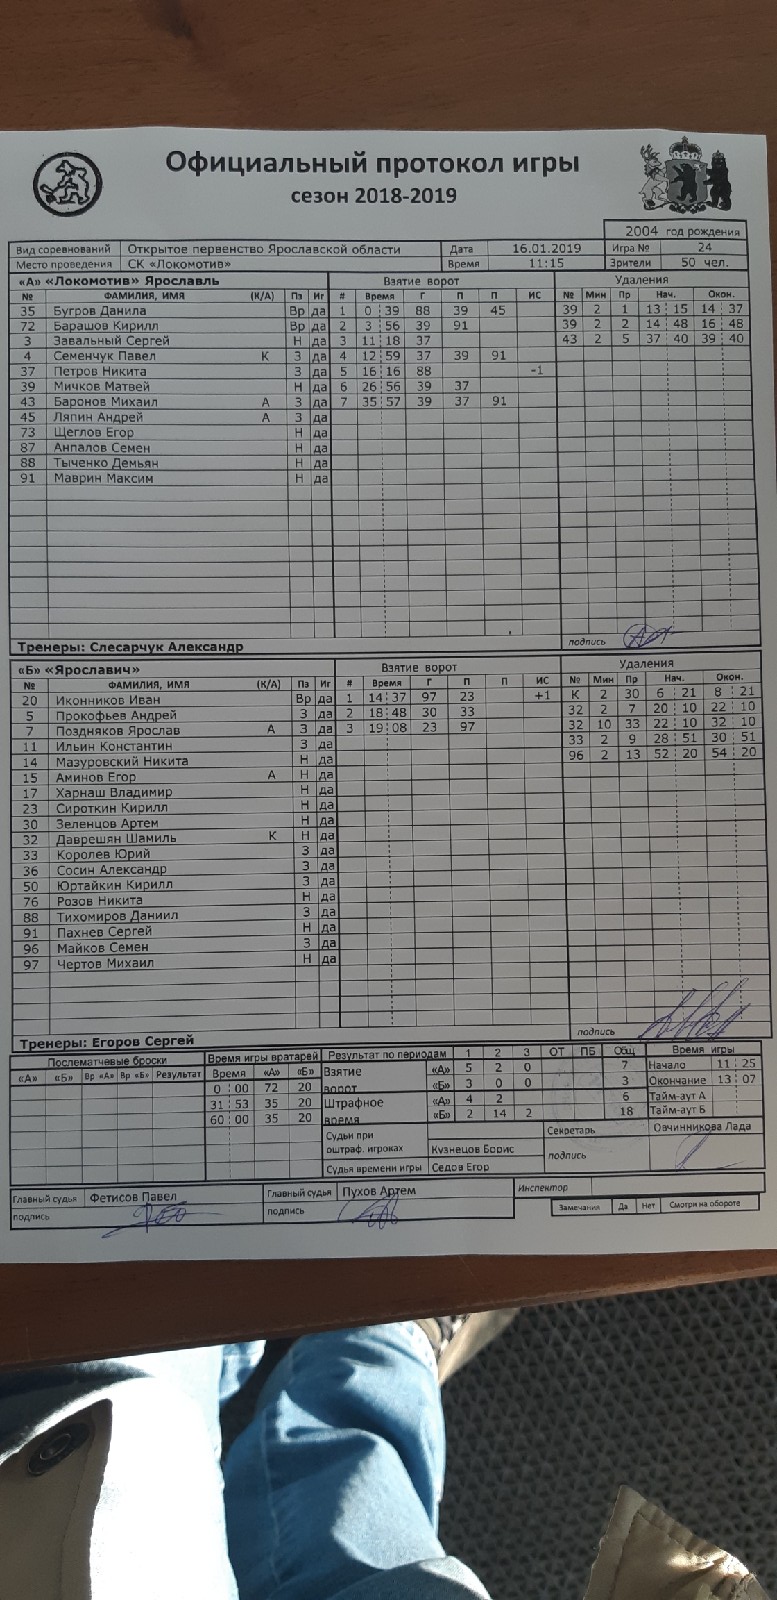 Официальный протокол игры
сезон 2018-2019
2004 год рождения
Вид соревнований Открытое первенство Ярославской области Дата 16.01.2019 Игра № 24
Место проведения СК «Локомотив» Время 11:15 Зрители 50 чел.
«А» «Локомотив» Ярославль Взятие ворот Удаления
№ ФАМИЛИЯ, ИМЯ (К/А) Пз Иг # Время Г П П ИС № Мин Пр Нач. Окон.
35 Бугров Данила Вр да 1 0 39 88 39 45 39 2 1 13 15 14 37
72 Барашов Кирилл Вр да 2 3 56 39 91 39 2 2 14 48 16 48
3 Завальный Сергей Н да 3 11 18 37 43 2 5 37 40 39 40
4 Семенчук Павел К З да 4 12 59 37 39 91
37 Петров Никита З да 5 16 16 88 -1
39 Мичков Матвей Н да 6 26 56 39 37
43 Баронов Михаил А З да 7 35 57 39 37 91
45 Ляпин Андрей А З да
73 Щеглов Егор Н да
87 Анпалов Семен Н да
88 Тыченко Демьян Н да
91 Маврин Максим Н да
Тренеры: Слесарчук Александр подпись
«Б» «Ярославич» Взятие ворот Удаления
№ ФАМИЛИЯ, ИМЯ (К/А) Пз Иг # Время Г П П ИС № Мин Пр Нач. Окон.
20 Иконников Иван Вр да 1 14 37 97 23 +1 К 2 30 6 21 8 21
5 Прокофьев Андрей З да 2 18 48 30 33 32 2 7 20 10 22 10
7 Поздняков Ярослав А З да 3 19 08 23 97 32 10 33 22 10 32 10
11 Ильин Константин З да 33 2 9 28 51 30 51
14 Мазуровский Никита Н да 96 2 13 52 20 54 20
15 Аминов Егор А Н да
17 Харнаш Владимир Н да
23 Сироткин Кирилл Н да
30 Зеленцов Артем Н да
32 Даврешян Шамиль К Н да
33 Королев Юрий З да
36 Сосин Александр З да
50 Юртайкин Кирилл З да
76 Розов Никита Н да
88 Тихомиров Даниил З да
91 Пахнев Сергей Н да
96 Майков Семен З да
97 Чертов Михаил Н да
Тренеры: Егоров Сергей подпись
Послематчевые броски Время игры вратарей Результат по периодам 1 2 3 ОТ ПБ Общ Время игры
«А» «Б» Вр «А» Вр «Б» Результат Время «А» «Б» Взятие ворот «А» 5 2 0 7 Начало 11 25
0 00 72 20 «Б» 3 0 0 3 Окончание 13 07
31 53 35 20 Штрафное время «А» 4 2 6 Тайм-аут А
60 00 35 20 «Б» 2 14 2 18 Тайм-аут Б
Судьи при оштраф. игроках Кузнецов Борис Секретарь Овчинникова Лада
Судья времени игры Седов Егор подпись
Главный судья Фетисов Павел Главный судья Пухов Артем Инспектор
подпись подпись Замечания Да Нет Смотри на обороте